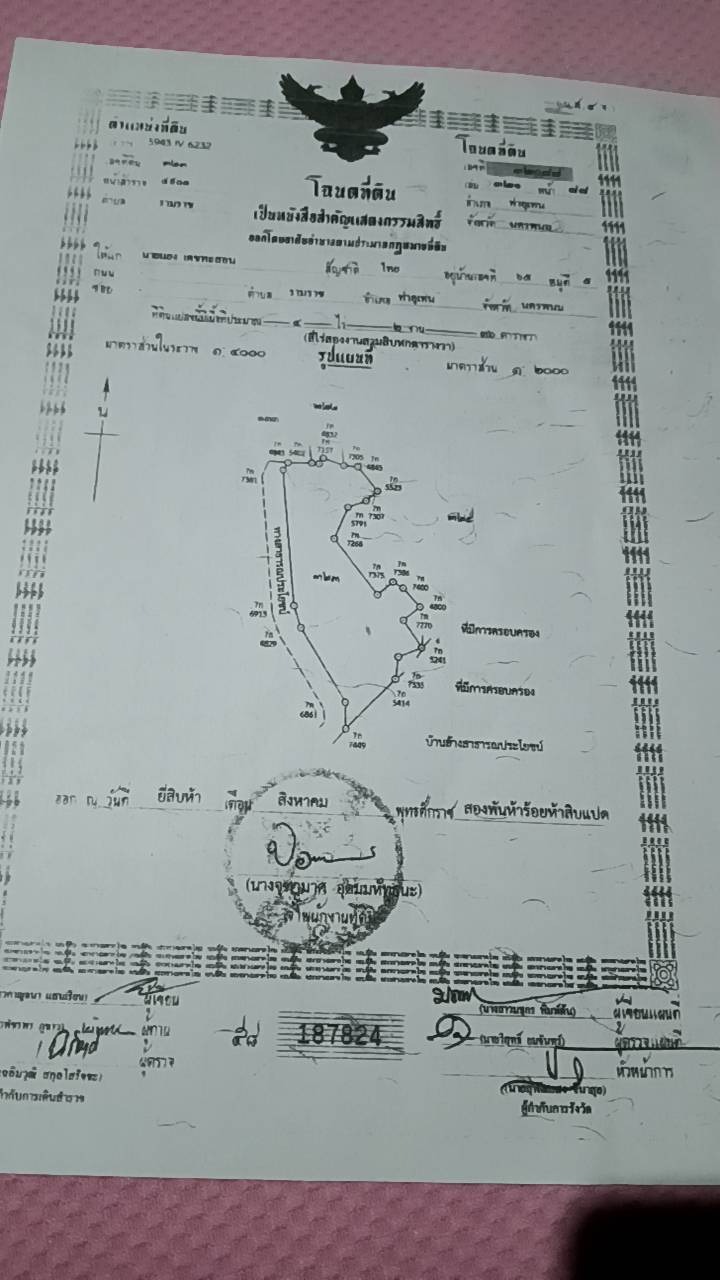 น.ส. ๔ จ.
ตำแหน่งที่ดิน
ระวาง 5943 IV 6232
เลขที่ดิน ๓๒๓
หน้าสำรวจ
ตำบล รามราช
โฉนดที่ดิน
เลขที่ ๓๒๐๗๗
เล่ม ๓๒๑ หน้า ๗๗
อำเภอ ท่าอุเทน
จังหวัด นครพนม
โฉนดที่ดิน
เป็นหนังสือสำคัญแสดงกรรมสิทธิ์
ออกโดยอาศัยอำนาจตามประมวลกฎหมายที่ดิน
ให้แก่ สัญชาติ ไทย อยู่บ้านเลขที่ ๖๕ หมู่ที่ ๕
ถนน
ซอย ตำบล รามราช อำเภอ ท่าอุเทน จังหวัด นครพนม
ที่ดินแปลงนี้มีเนื้อที่ประมาณ ๔ ไร่ ๒ งาน ๓๖ ตารางวา
(สี่ไร่สองงานสามสิบหกตารางวา)
มาตราส่วนในระวาง ๑: ๔๐๐๐ รูปแผนที่ มาตราส่วน ๑: ๒๐๐๐
น
7ก 4832
7ก 6843
7ก 5402
7ก 7157
7ก 7305
7ก 4845
7ก 7381
7ก 5523
7ก 7307
7ก 5791
7ก 7268
๓๒๕
ทางสาธารณประโยชน์
๓๒๓
7ก 7375
7ก 7386
7ก 7400
7ก 4800
7ก 6913
7ก 7270
7ก 6829
ที่มีการครอบครอง
7ก 5241
7ก 7335
7ก 5414
ที่มีการครอบครอง
7ก 6861
7ก 7449
บ้านร้างสาธารณประโยชน์
ออก ณ วันที่ ยี่สิบห้า เดือน สิงหาคม พุทธศักราช สองพันห้าร้อยห้าสิบแปด
เจ้าพนักงานที่ดิน
ผู้เขียน
ผู้ทาน
ผู้ตรวจ
กำกับการเดินสำรวจ
๕๘ 187824
ผู้เขียนแผนที่
ผู้ตรวจแผนที่
หัวหน้าการ
ผู้กำกับการรังวัด